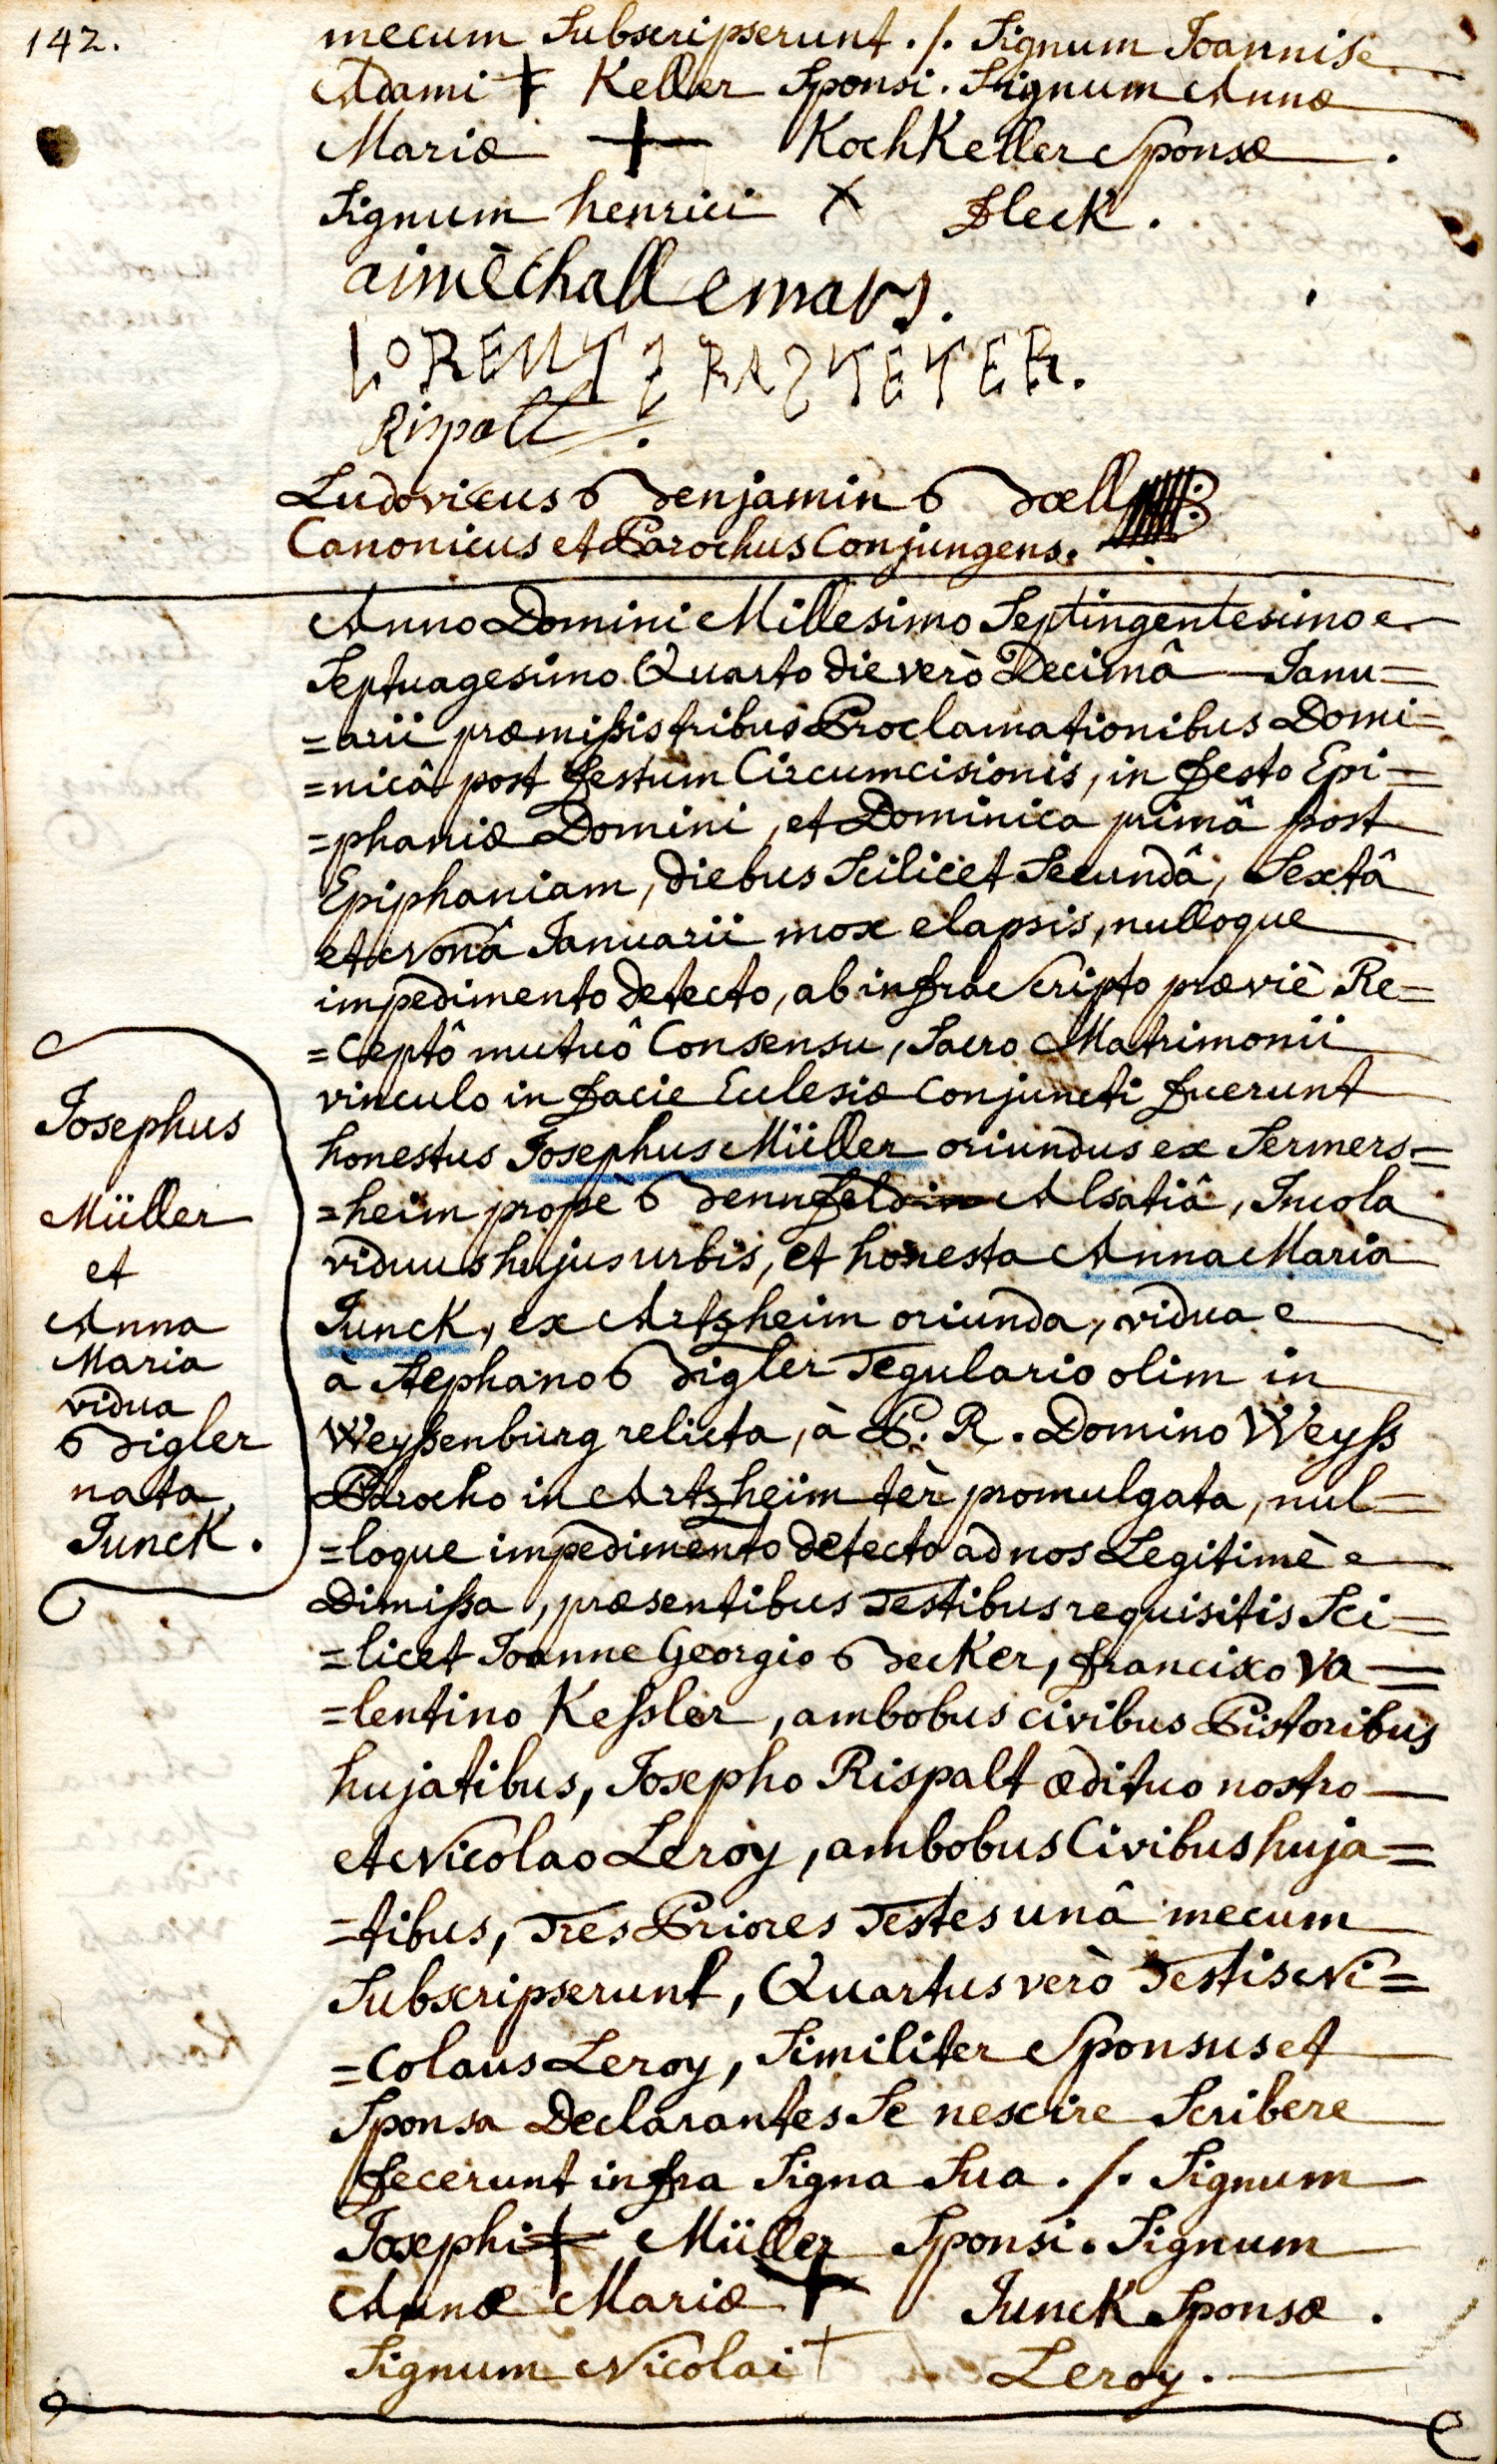 142.
mecum Subscripserunt ./. Signum Joannis
Adami + Keller Sponsi. Signum Annæ
Mariæ + KochKeller Sponsæ.
Signum henrici X fleck.
aimé challemars.
LORENTZ RASTETER.
Rispalt
Ludovicus Benjamin Boell
Canonicus et Parochus Conjungens.
Anno Domini Millesimo Septingentesimo
Septuagesimo Quarto die verò Decimâ Janu=
=arii præmissis tribus Proclamationibus Domi=
=nicâ post festum Circumcisionis, in festo Epi=
=phaniæ Domini, et Dominica primâ post
Epiphaniam, diebus Scilicet Secundâ, Sextâ
et Nonâ Januarii mox elapsis, nulloque
impedimento detecto, ab infra Scripto præviè Re=
=ceptô mutuô Consensu, Sacro Matrimonii
vinculo in facie Eclesiæ Conjuncti fuerunt
honestus Josephus Müller oriundus ex Sermers=
=heim propè Bennfeld in Alsatiâ, Incola
viduus hujus urbis, et honesta Anna Maria
Junck, ex Artzheim oriunda, vidua
à Stephano Bigler Tegulario olim in
Weyssenburg relicta, à P. R. Domino Weyss
Parocho in Artzheim tèr promulgata, nul=
=loque impedimento detecto ad nos Legitimè
Dimissa, præsentibus Testibus requisitis Sci=
=licet Joanne Georgio Becker, francisco Va=
=lentino Kessler, ambobus civibus Pistoribus
hujatibus, Josepho Rispalt ædituo nostro
et Nicolao Leroy, ambobus Civibus huja=
=tibus, Tres Priores Testes unâ mecum
Subscripserunt, Quartus verò Testis Ni=
=colaus Leroy, Similiter Sponsus et
Sponsa Declarantes Se nescire Scribere
fecerunt infra Signa Sua ./. Signum
Josephi + Müller Sponsi. Signum
Annæ Mariæ + Junck Sponsæ.
Signum Nicolai + Leroy.
Josephus
Müller
et
Anna
Maria
vidua
Bigler
nata
Junck.